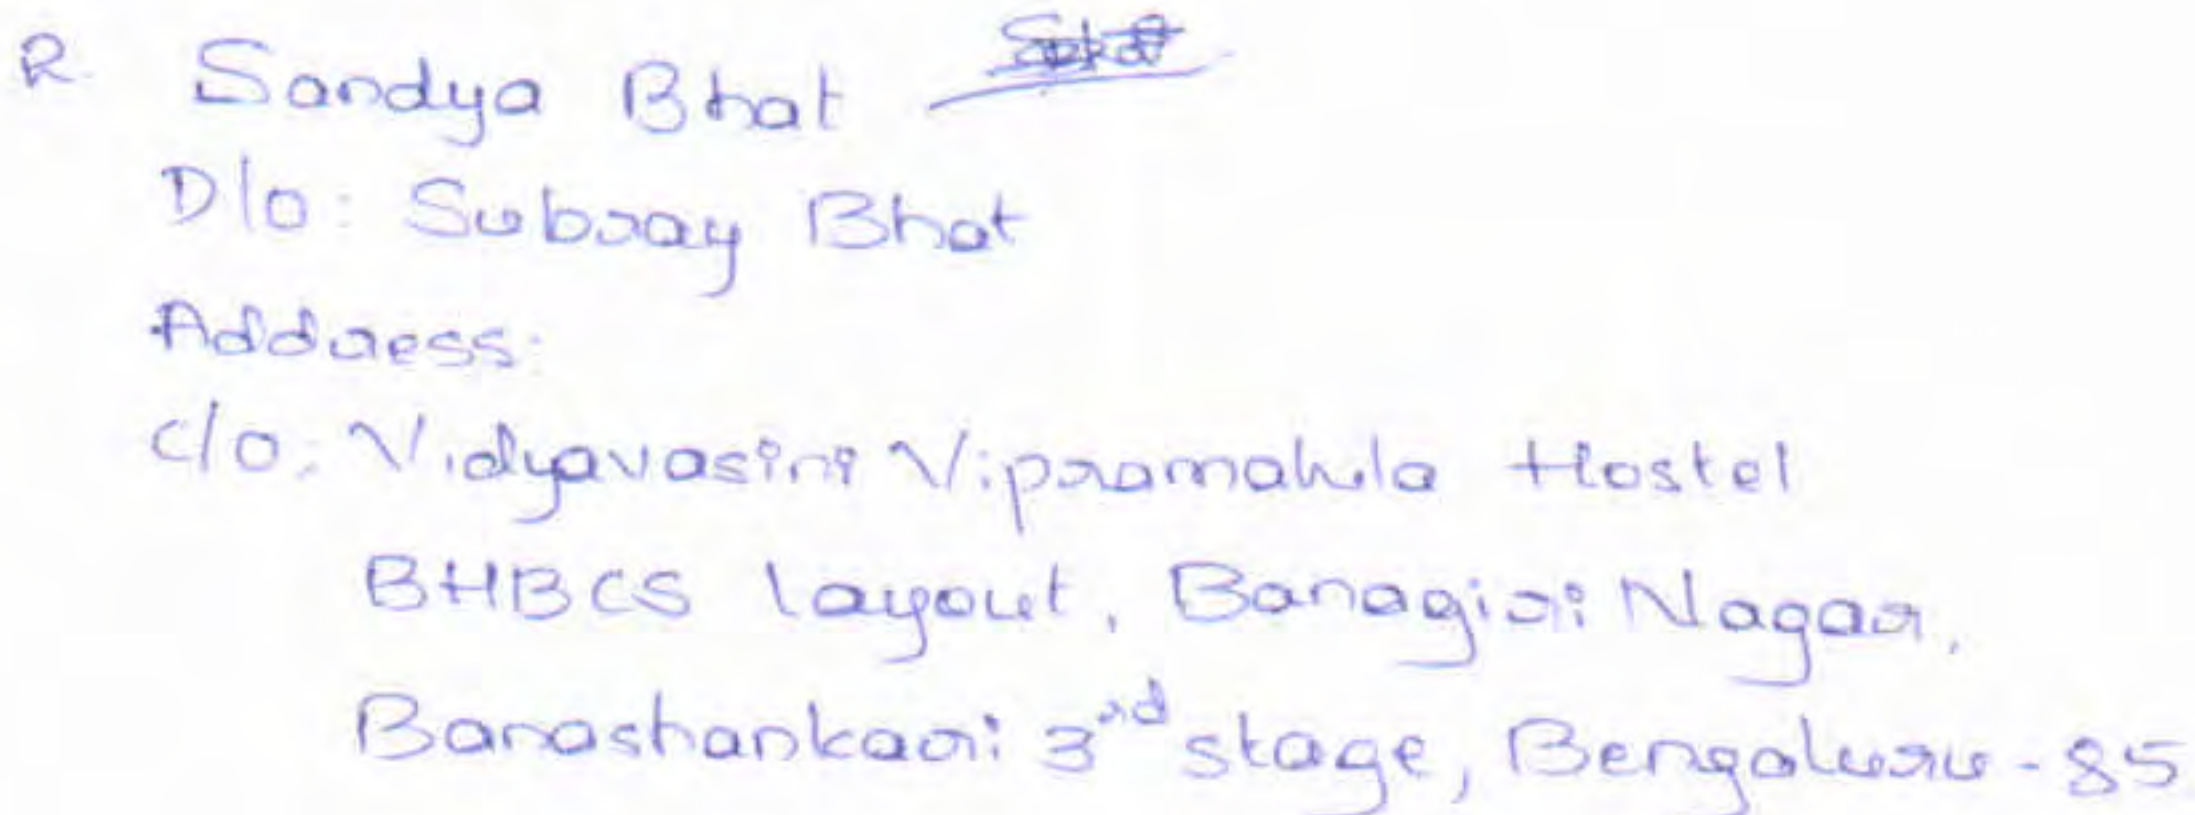 2. Sandya Bhat
D/o: Subray Bhat
Address:
C/o: Vidyavasini Vipramahila Hostel
BHBCS layout, Banagiri Nagar,
Banashankari 3rd stage, Bengaluru - 85